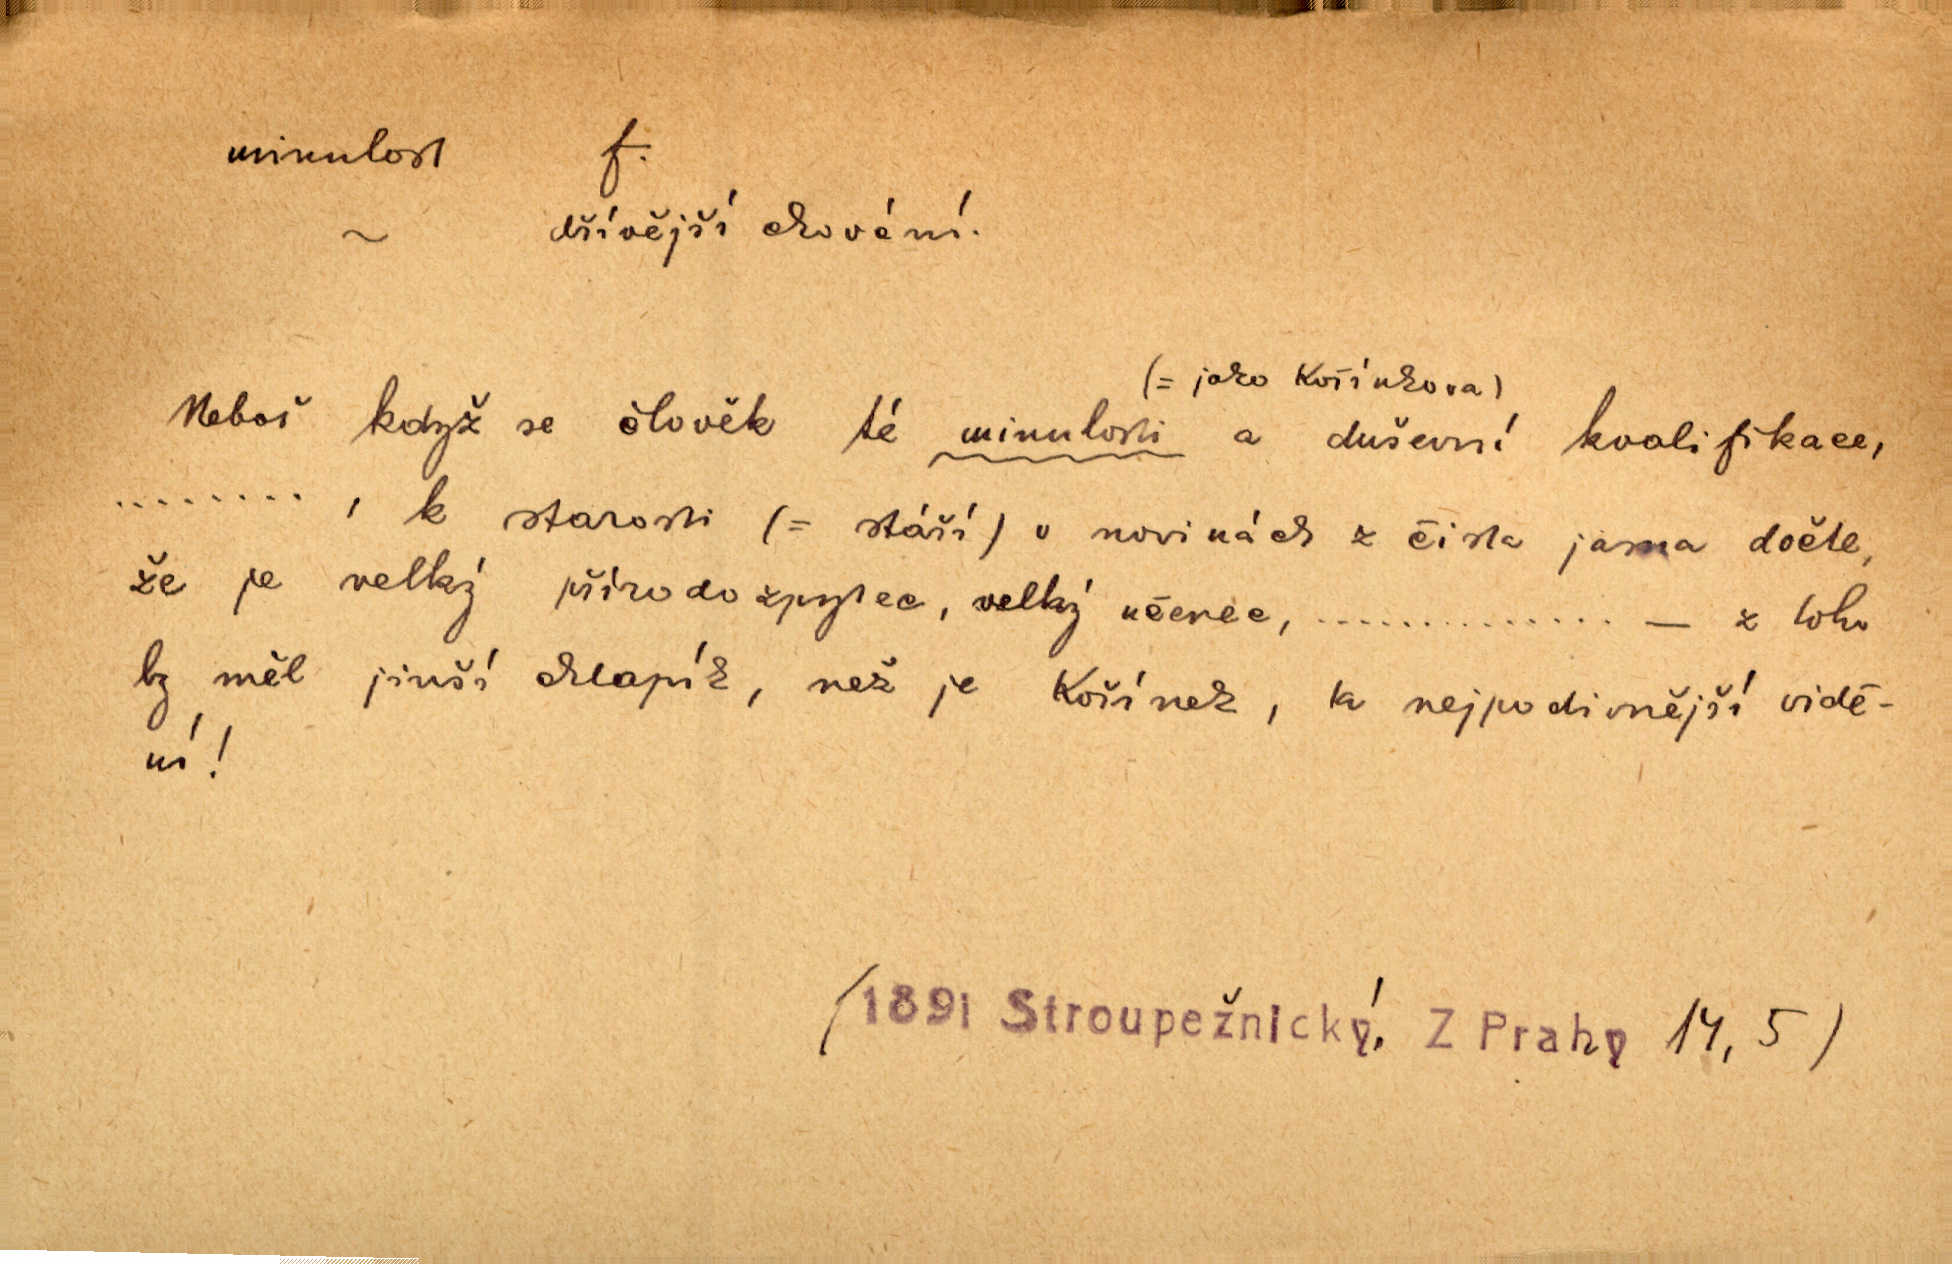 minulost f.
~ dřívější chování.
(= jako Kořínkova)
Neboť když se člověk té minulosti a duševní kvalifikace,
........ , k starosti (= stáří) v novinách z čista jasna dočte,
že je velký přírodozpytec, velký učenec, .............. — z toho
by měl jinší chlapík, než je Kořínek, ty nejpodivnější vidě-
ní!
(1891 Stroupežnický, Z Prahy 14, 5)